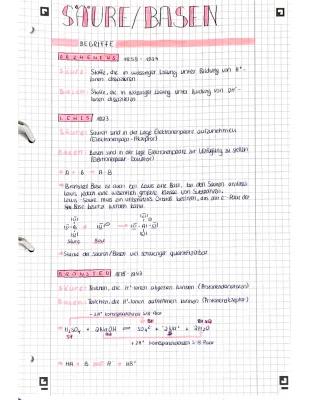 SÄURE/BASEN
BEGRIFFE
ARRHENIUS 1859 - 1927
Säure: Stoffe, die in wässriger Lösung unter Bildung von H⁺-
Ionen dissoziieren
Basen: Stoffe, die in wässriger Lösung unter Bildung von OH⁻-
Ionen dissoziieren
LEWIS 1923
Säure: Säuren sind in der Lage Elektronenpaare aufzunehmen
(Elektronenpaar-Akzeptor)
Basen: Basen sind in der Lage Elektronenpaare zur Verfügung zu stellen
(Elektronenpaar-Donator)
→ A + B → A-B
→ Brønsted Base ist auch ein Lewis eine Base, bei den Säuren anders
Lewis, jedoch eine wesentlich größere Klasse von Substanzen.
Lewis-Säure muss ein unbesetztes Orbital besitzen, das
Base besetzt werden kann
Säure Base
→ Stärke der Säuren/Basen viel schwieriger quantifizierbar
BRØNSTED
Säure: Teilchen, die H⁺-Ionen abgeben können (Protonendonatoren)
Basen: Teilchen, die H⁺-Ionen aufnehmen können (Protonenakzeptor)
H₂SO₄ + 2NaOH
→ HA + B ⇌ A⁻ + HB⁺